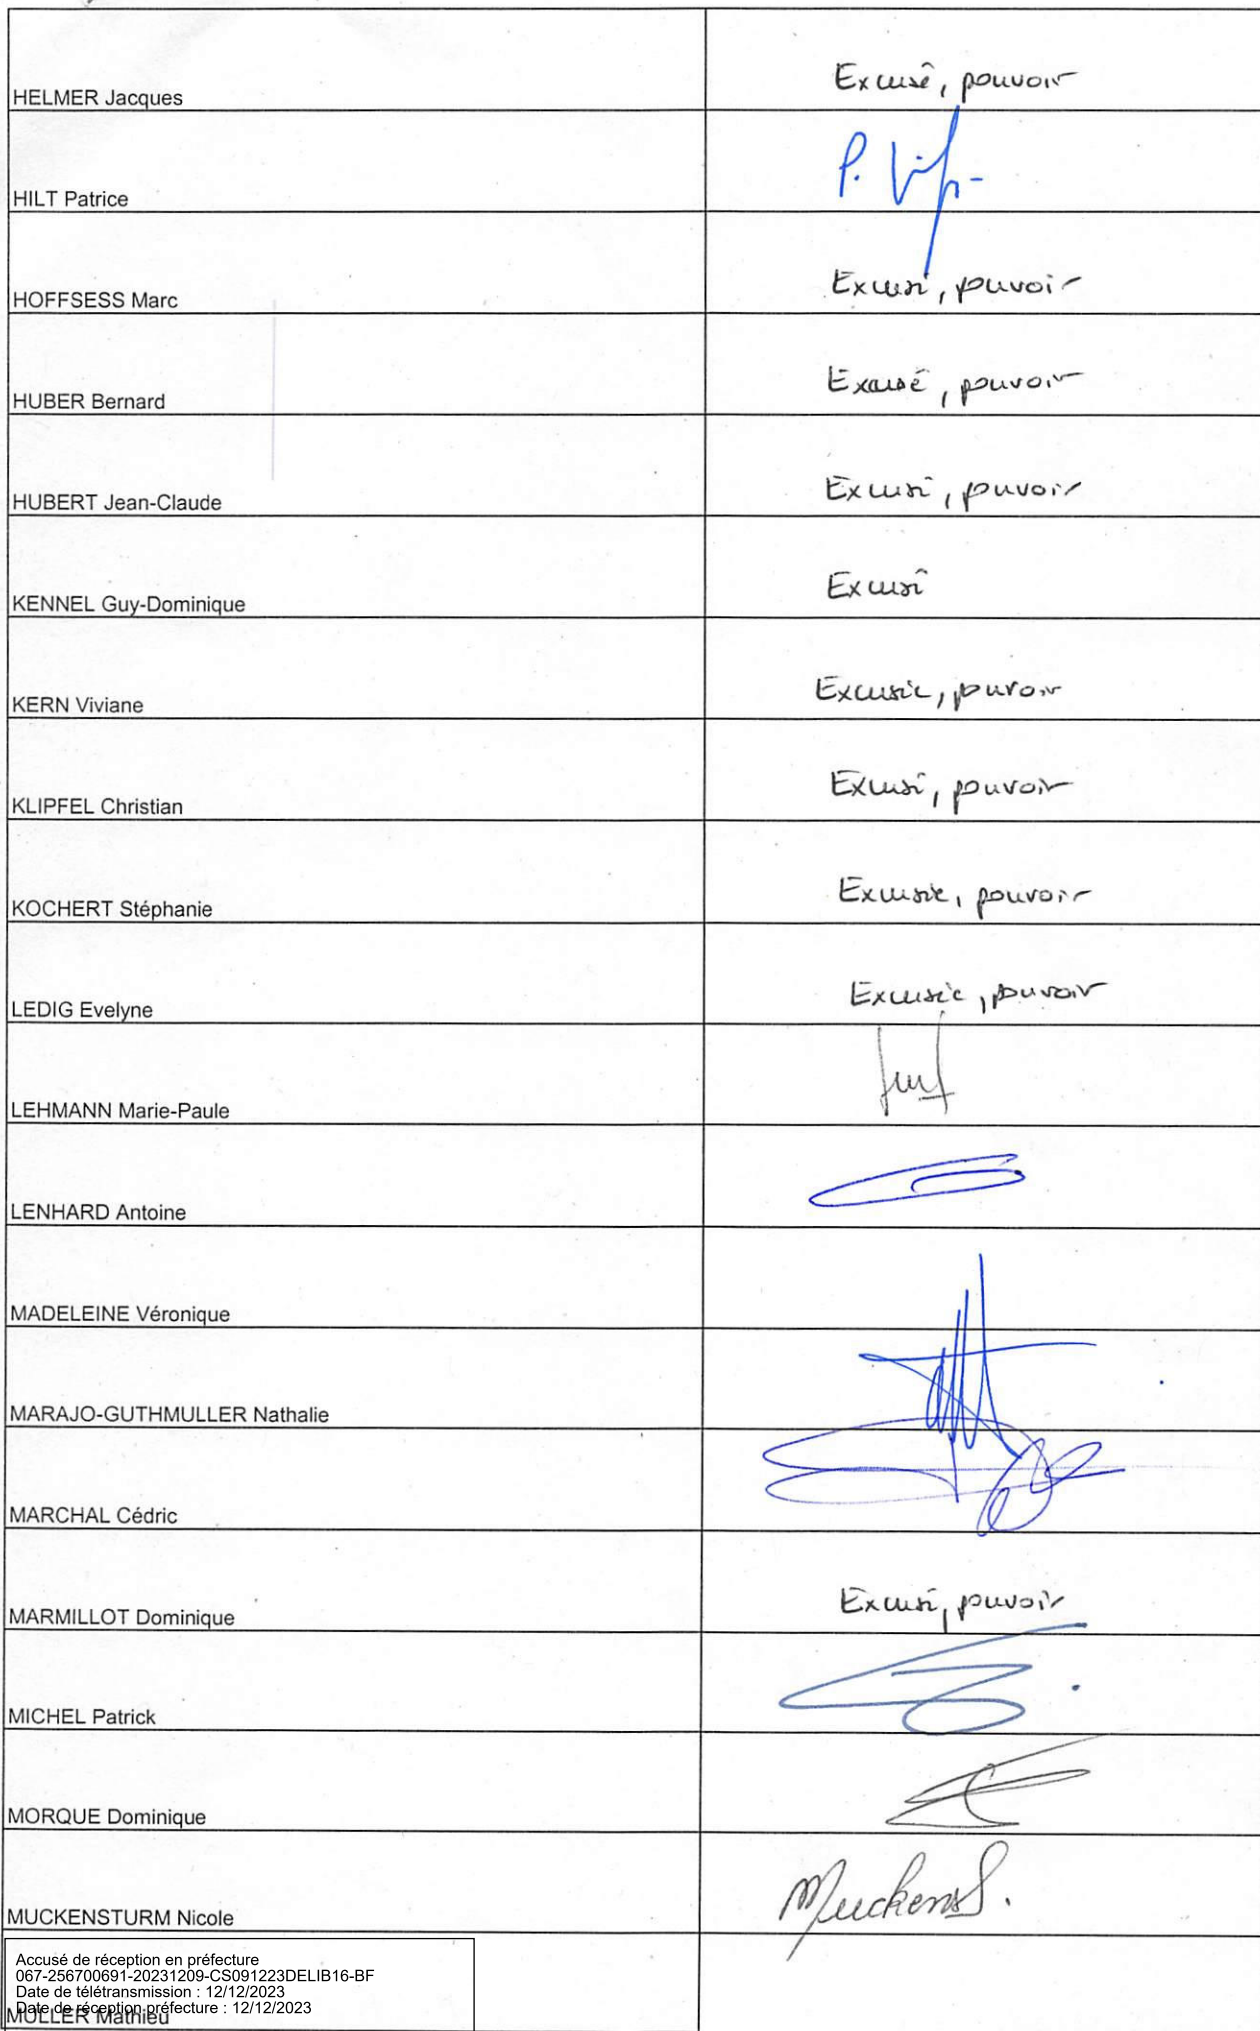 HELMER Jacques Excusé, pouvoir
HILT Patrice P.
HOFFSESS Marc Excusé, pouvoir
HUBER Bernard Excusé, pouvoir
HUBERT Jean-Claude Excusé, pouvoir
KENNEL Guy-Dominique Excusé
KERN Viviane Excusée, pouvoir
KLIPFEL Christian Excusé, pouvoir
KOCHERT Stéphanie Excusée, pouvoir
LEDIG Evelyne Excusée, pouvoir
LEHMANN Marie-Paule
LENHARD Antoine
MADELEINE Véronique
MARAJO-GUTHMULLER Nathalie
MARCHAL Cédric
MARMILLOT Dominique Excusé, pouvoir
MICHEL Patrick
MORQUE Dominique
MUCKENSTURM Nicole
Accusé de réception en préfecture
067-256700691-20231209-CS091223DELIB16-BF
Date de télétransmission : 12/12/2023
Date de réception préfecture : 12/12/2023
MULLER Mathieu